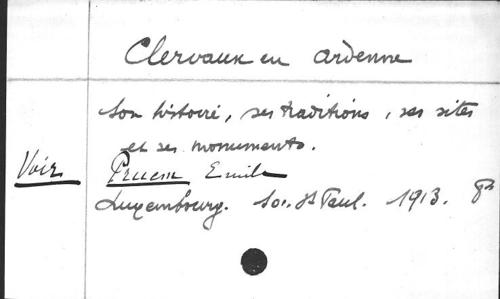 Clervaux en ardenne
son histoire, ses traditions, ses sites
et ses monuments.
Voir Pruem Emile
Luxembourg. Soc. St Paul. 1913. 8°